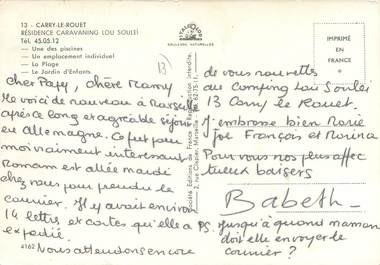 13 - CARRY-LE-ROUET
RÉSIDENCE CARAVANING LOU SOULEÏ
Tél. 45.05.12
— Une des piscines
— Un emplacement individuel
— La Plage
— Le Jardin d'Enfants
cher Papy, chère Mamy
Me voici de nouveau à Marseille
après ce long et agréable séjour
en Allemagne. Ce fut pour
moi vraiment interessant
Maman est allée mardi
chez vous pour prendre le
courrier. Il y avait environ
14 lettres et cartes qu'elle a
expédié.
Nous attendons encore
4162
13
COULEURS NATURELLES
Société Éditions de France - Reproduction interdite
IMPRIMÉ
EN
FRANCE
de vous
au Camping Lou Soulei
13 Carry le Rouet.
J'embrasse bien Marie
Joe François et Marina
Pour vous nos plus affec
tueux baisers
Babeth
PS. jusqu'à quand maman
doit elle envoyer le
courrier ?